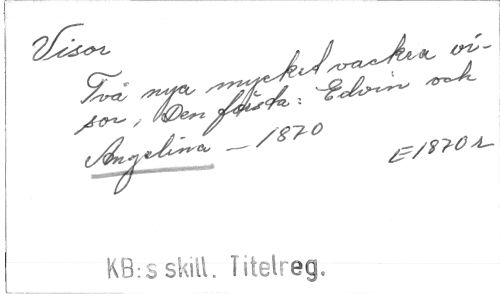 Visor
Två nya mycket vackra vi-
sor, Den första: Edvin och
Angelina - 1870
E1870r
KB:s skill. Titelreg.